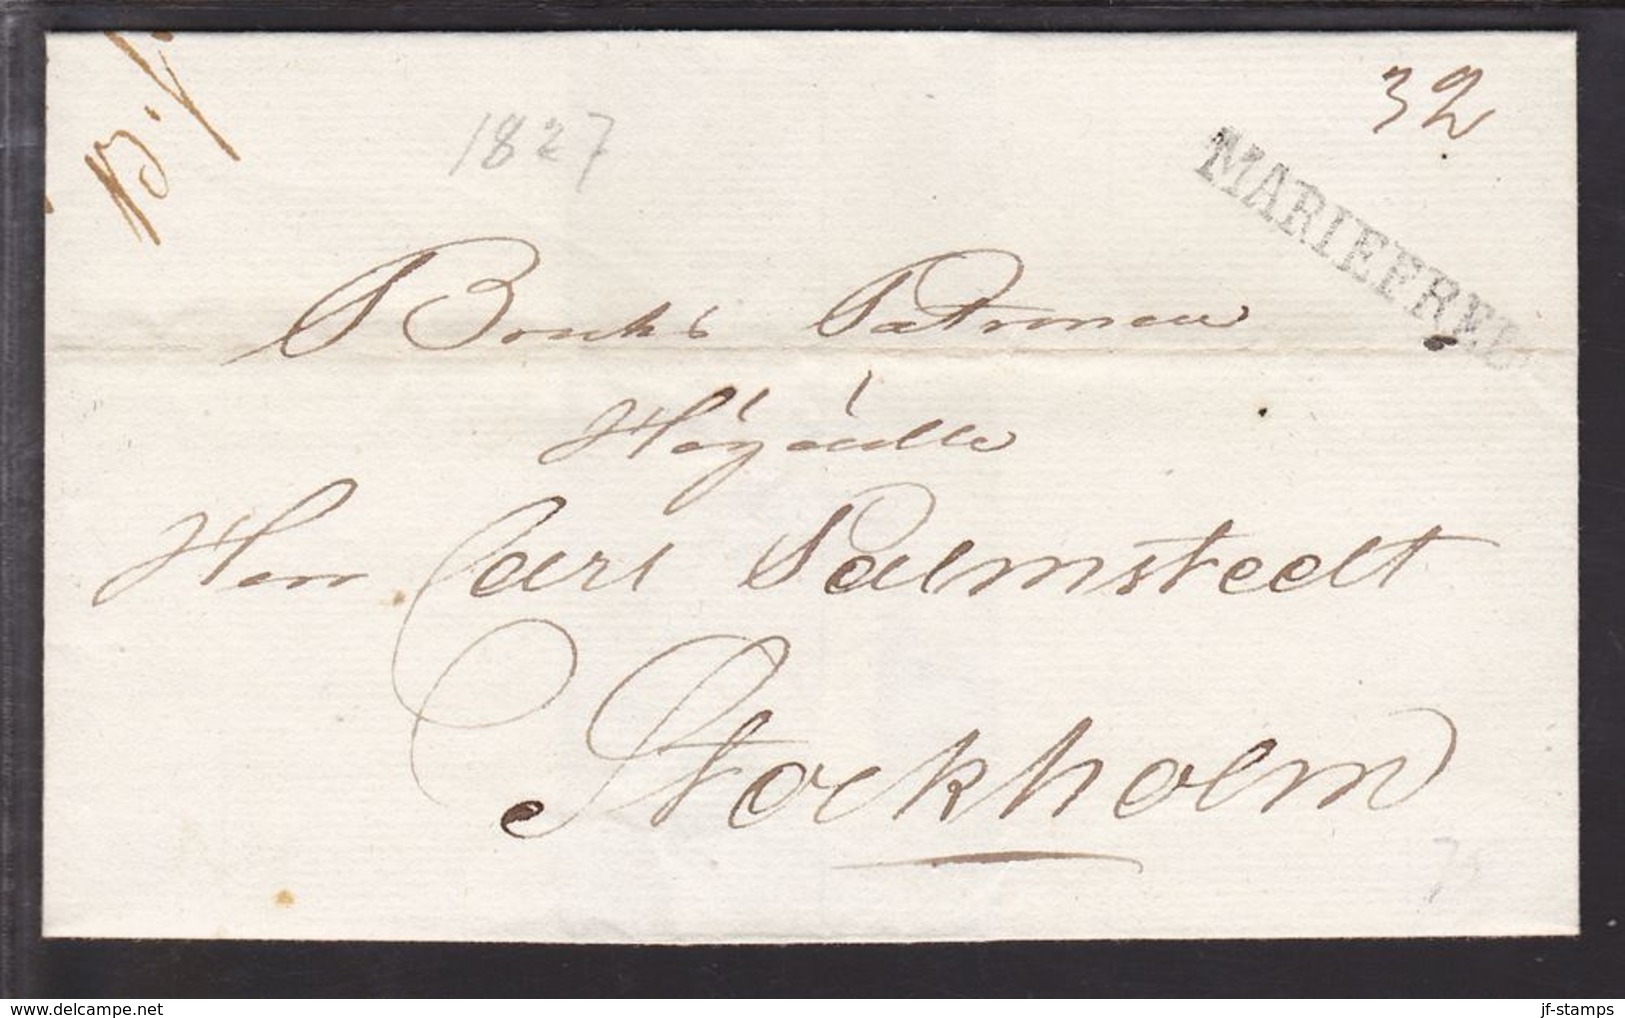 32
1827
MARIEFRED
Bruks Patronen
Högädle
Herr Carl Palmstedt
Stockholm
www.delcampe.net
jf-stamps